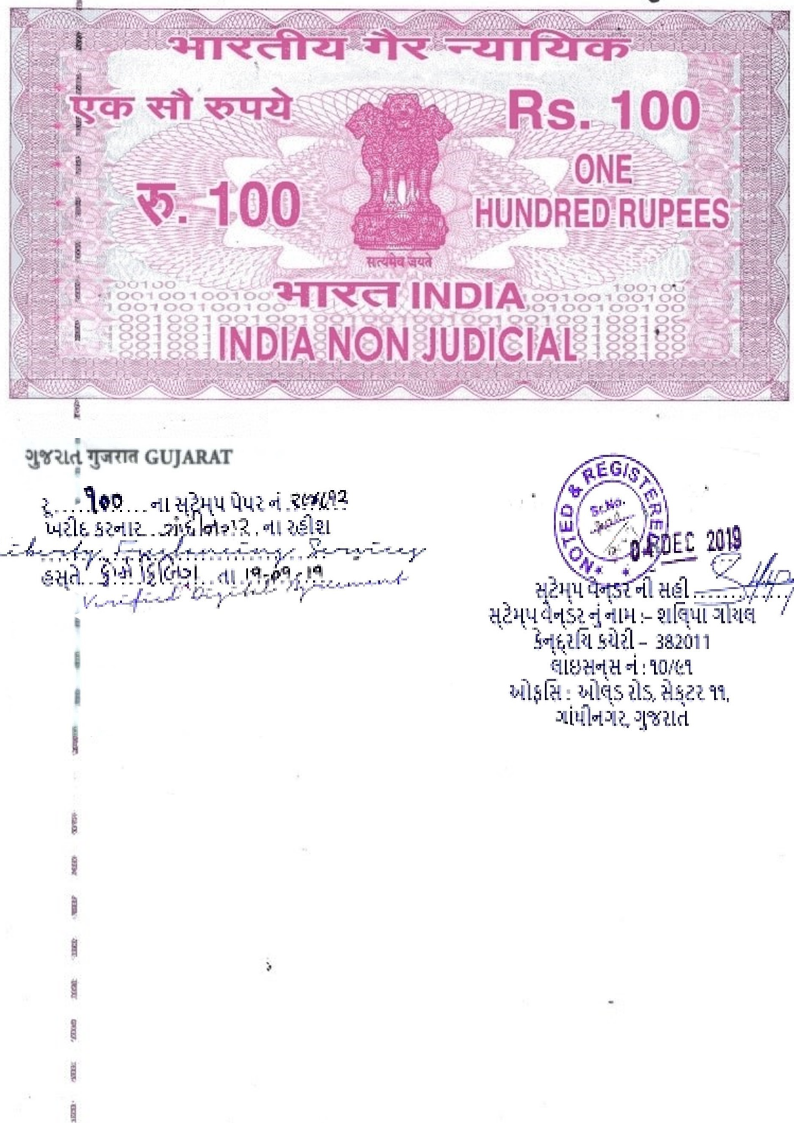 भारतीय गैर न्यायिक
एक सौ रुपये
Rs. 100
रु. 100
ONE
HUNDRED RUPEES
सत्यमेव जयते
भारत INDIA
INDIA NON JUDICIAL
ગુજરાત गुजरात GUJARAT
રૂ. ૧૦૦ ના સ્ટેમ્પ પેપર નં
ખરીદ કરનાર ગાંધીનગર ના રહીશ
Services
હસ્તે તા ૧૧-૦૧-૧૧
Verified Digital Agreement
NOTED & REGISTERE
Sr.No.
04 DEC 2019
સ્ટેમ્પ વેન્ડર ની સહી
સ્ટેમ્પ વેન્ડર નું નામ :-
કેન્દ્રચિ કચેરી - 382011
લાઇસન્સ નં : ૧૦/૯૧
ઓફસિ : ઓલ્ડ રોડ, સેક્ટર ૧૧,
ગાંધીનગર, ગુજરાત